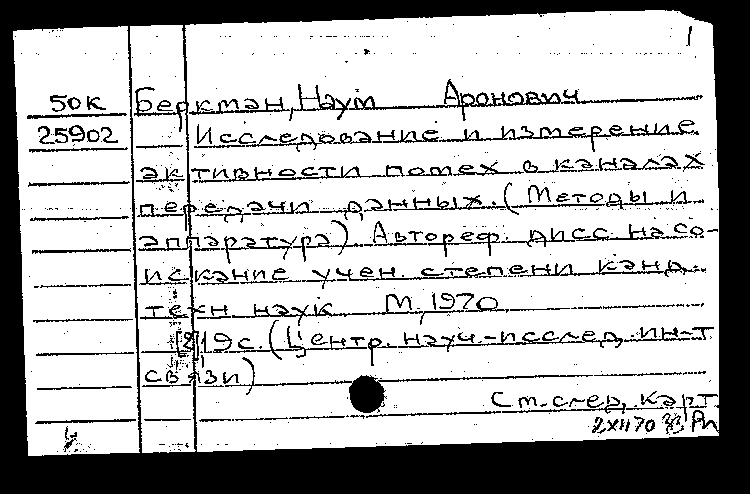 1
50К Беркман, Наум Аронович
25902 Исследование и измерение
активности помех в каналах
передачи данных. (Методы и
аппаратура) Автореф. дисс. на со-
искание учен. степени канд.
техн. наук. М., 1970.
19 с. (Центр. науч.-исслед. ин-т
связи)
См. след. карт